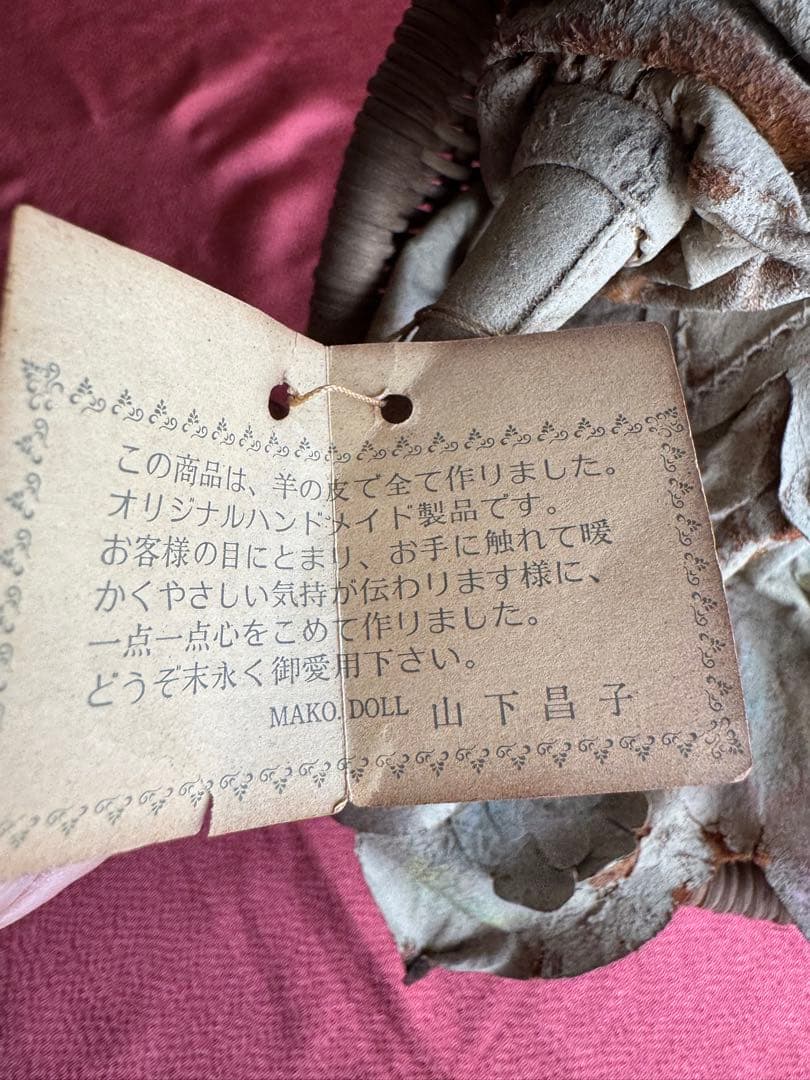 この商品は、羊の皮で全て作りました。
オリジナルハンドメイド製品です。
お客様の目にとまり、お手に触れて暖
かくやさしい気持が伝わります様に、
一点一点心をこめて作りました。
どうぞ末永く御愛用下さい。
MAKO. DOLL 山下昌子